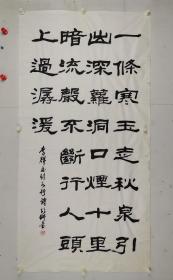 一條寒玉走秋泉引
出深蘿洞口煙十里
暗流聲不斷行人頭
上過潺湲